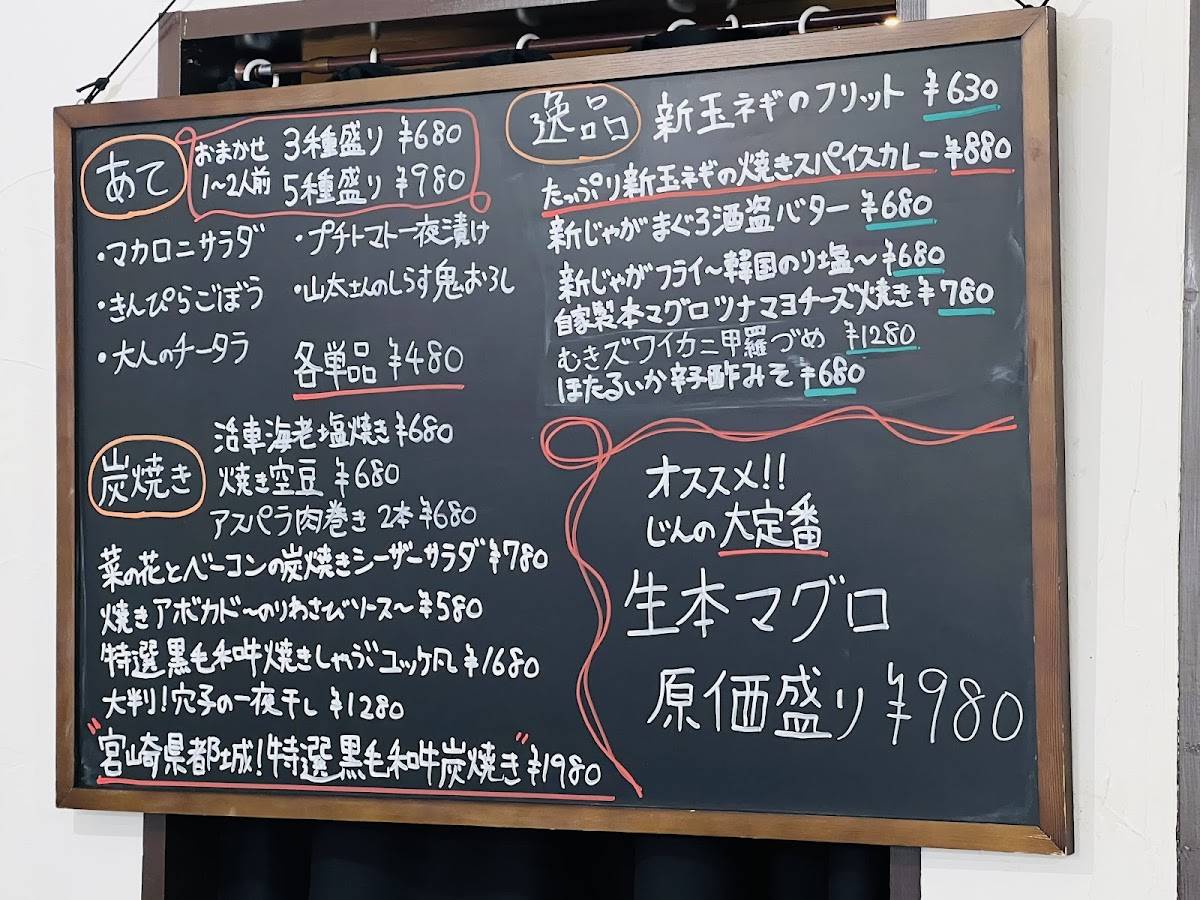 あて
おまかせ 3種盛り ¥680
1〜2人前 5種盛り ¥980
・マカロニサラダ ・プチトマト一夜漬け
・きんぴらごぼう ・山太さんのしらす鬼おろし
・大人のチータラ
各単品 ¥480
炭焼き
活車海老塩焼き ¥680
焼き空豆 ¥680
アスパラ肉巻き 2本 ¥680
菜の花とベーコンの炭焼きシーザーサラダ ¥780
焼きアボカド〜のりわさびソース〜 ¥580
特選黒毛和牛焼きしゃぶユッケ風 ¥1680
大判!穴子の一夜干し ¥1280
"宮崎県都城!特選黒毛和牛炭焼き" ¥1980
逸品
新玉ネギのフリット ¥630
たっぷり新玉ネギの焼きスパイスカレー ¥880
新じゃがまぐろ酒盗バター ¥680
新じゃがフライ〜韓国のり塩〜 ¥680
自家製本マグロツナマヨチーズ焼き ¥780
むきズワイカニ甲羅づめ ¥1280
ほたるいか辛子酢みそ ¥680
オススメ!!
じんの大定番
生本マグロ
原価盛り ¥980